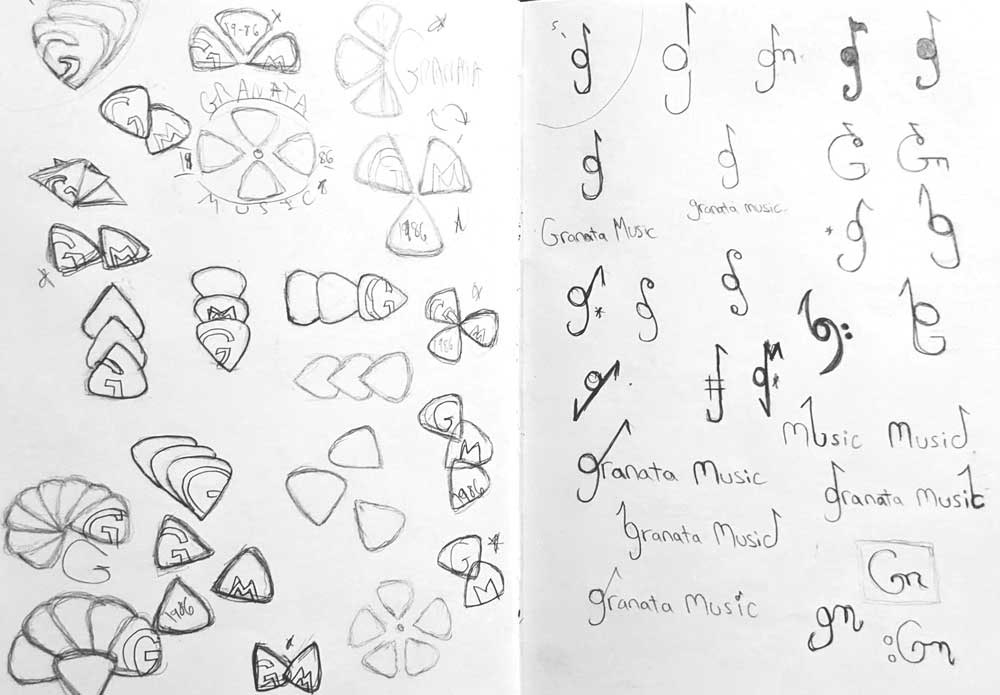 G
19-86
G M
G
M
GRANATA
GRANATA
18 86
MUSIC
G M
1986
G
G M
G
M
G
G
G M
1986
G
M
1986
G
G
G
G
M
1986
G
M
G
G M
g
g
gm
g
g
g
g
G
Gm
Granata Music
granata music.
g
g
g
g
g
g
Music Music
granata Music
granata Music
granata Music
granata Music
Gm
gm
Gm